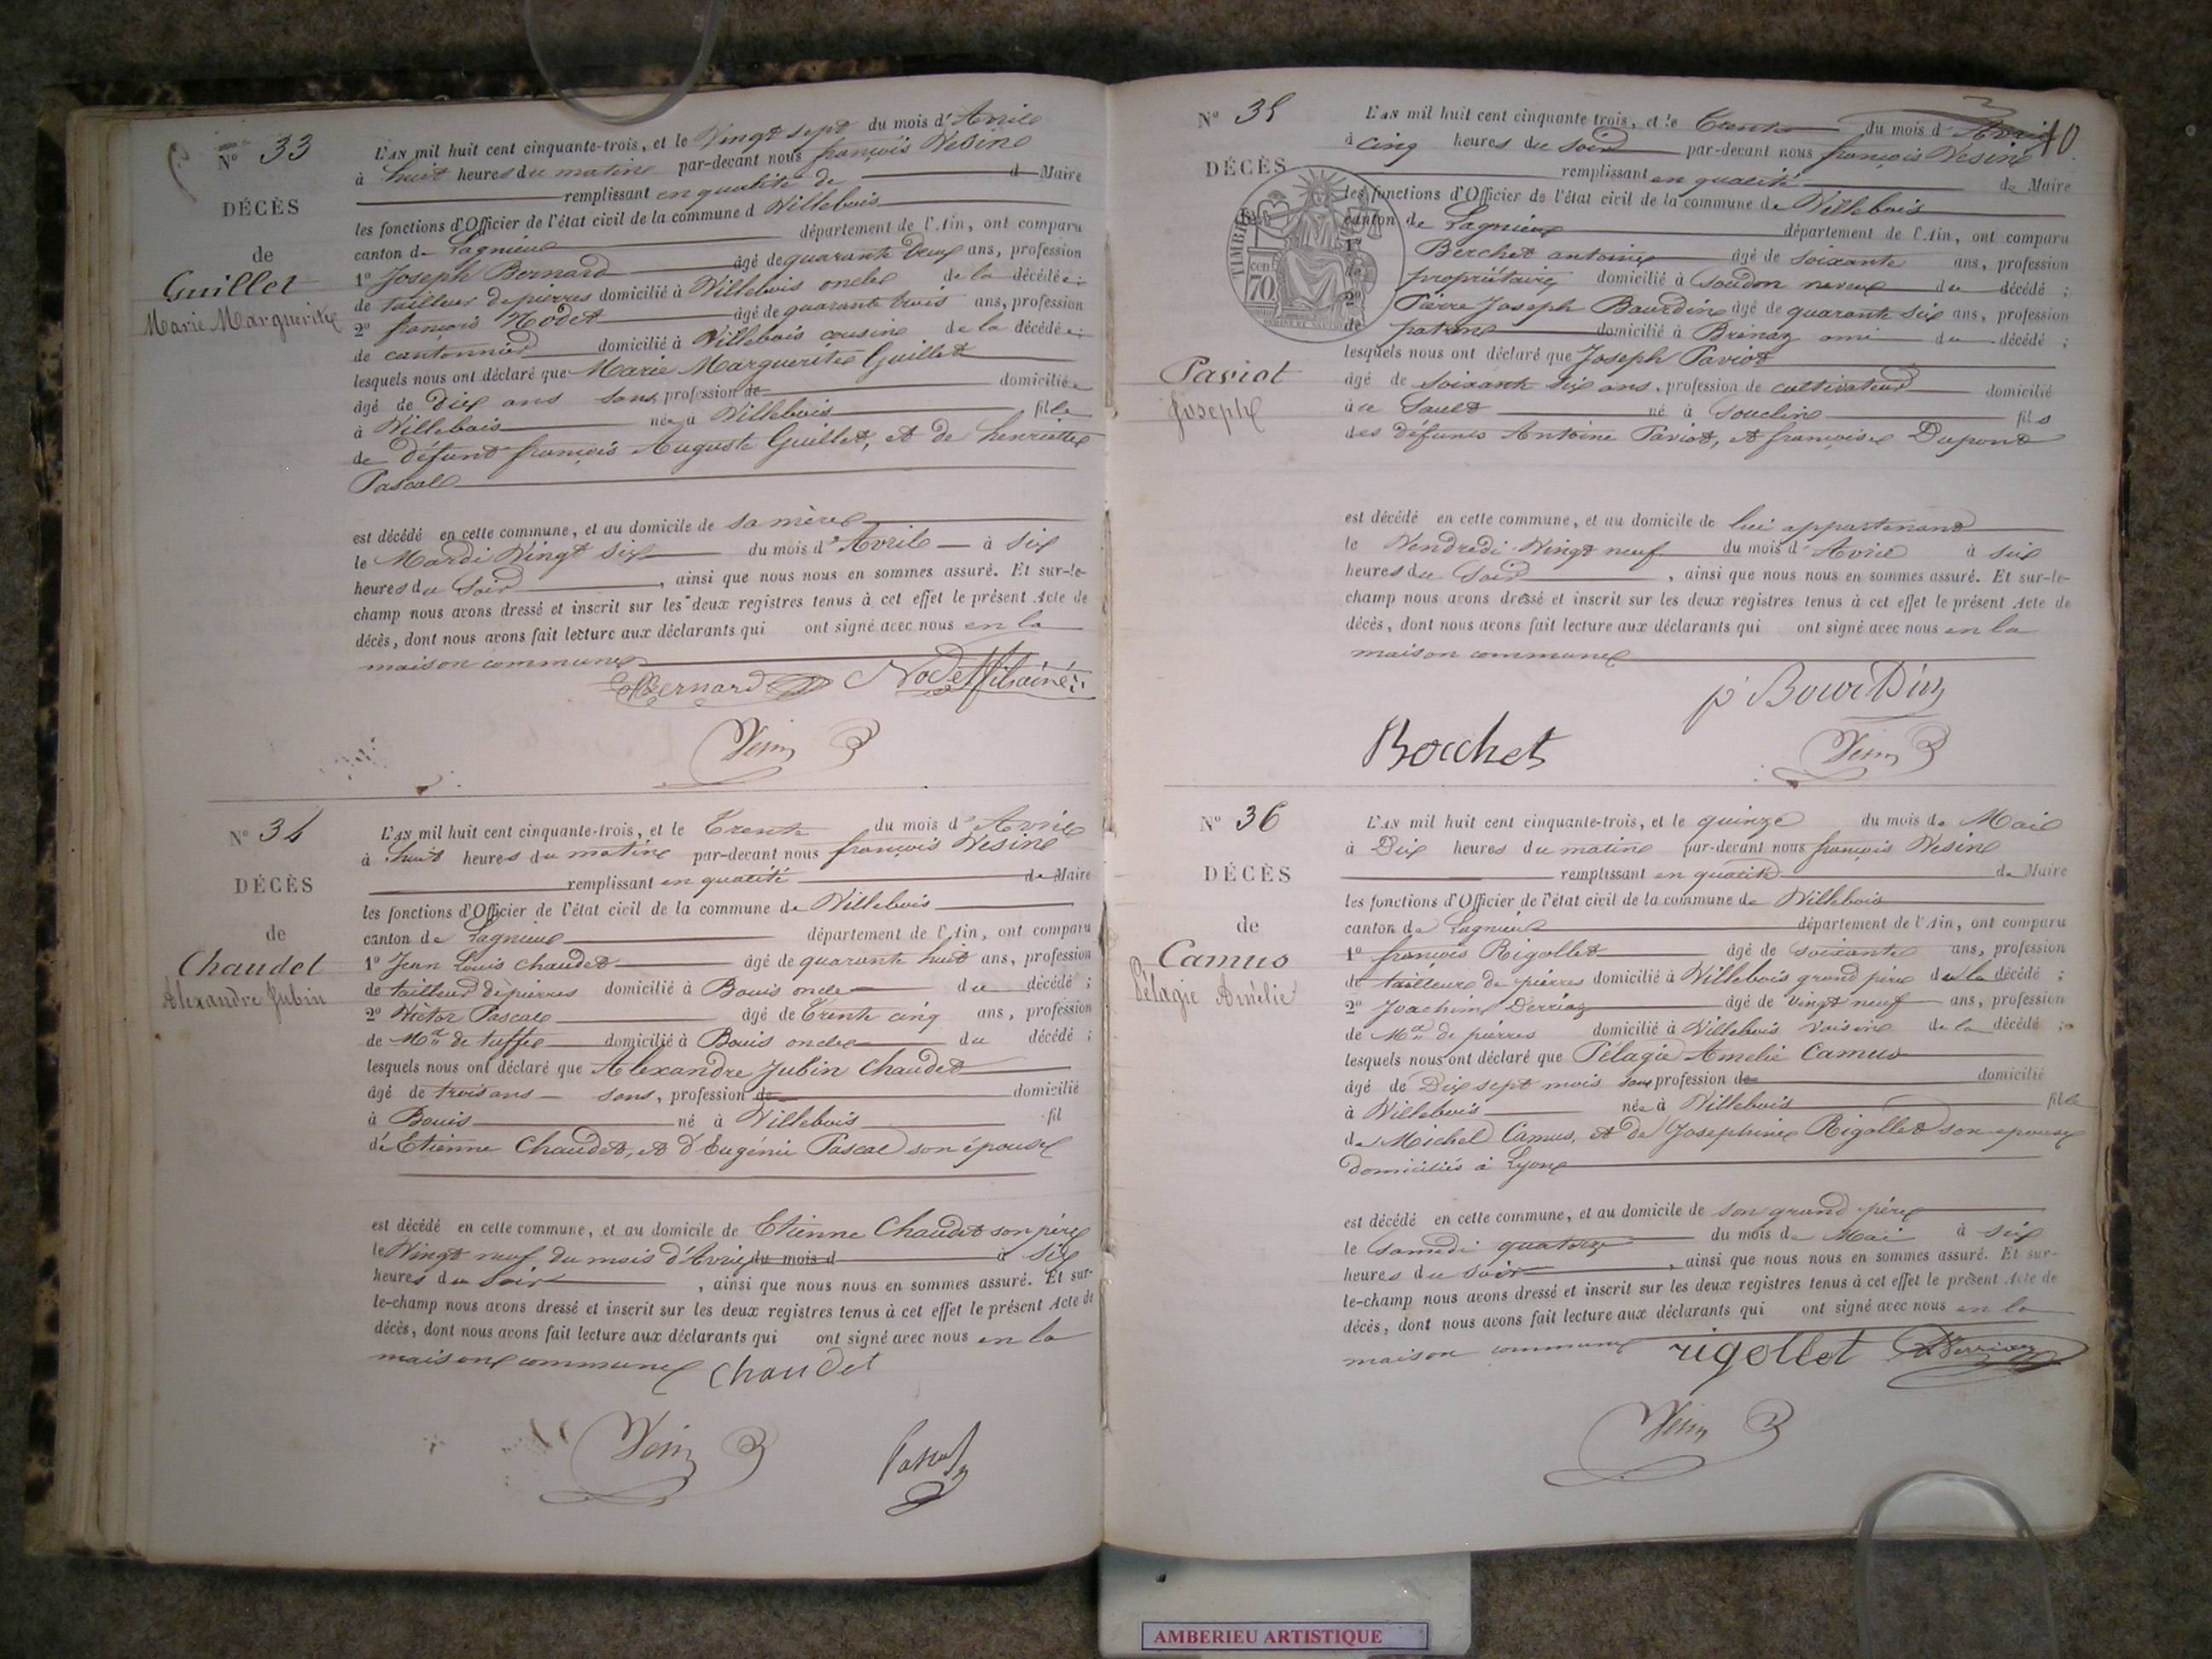 N° 33
DÉCÈS
de
Guillet
Marie Marguerite
L'AN mil huit cent cinquante-trois, et le Vingt sept du mois d'Avril
à huit heures du matin par-devant nous françois Vesin
remplissant en qualité de d Maire
les fonctions d'Officier de l'état civil de la commune d Villebois
canton de Lagnieu département de l'Ain, ont comparu
1° Joseph Bernard âgé de quarante deux ans, profession
de tailleur de pierres domicilié à Villebois oncle de la décédée;
2° françois Nodet âgé de quarante trois ans, profession
de cantonnier domicilié à Villebois cousin de la décédée;
lesquels nous ont déclaré que Marie Marguerite Guillet
âgé de dix ans sans profession de domiciliée
à Villebois née à Villebois fille
de défunt françois Auguste Guillet, et de henriette
Pascal
est décédé en cette commune, et au domicile de sa mère
le Mardi Vingt six du mois d'Avril à six
heures du soir, ainsi que nous nous en sommes assuré. Et sur-le-
champ nous avons dressé et inscrit sur les deux registres tenus à cet effet le présent Acte de
décès, dont nous avons fait lecture aux déclarants qui ont signé avec nous en la
maison commune
Bernard Nodet
Vesin
N° 34
DÉCÈS
de
Chaudet
Alexandre Jubin
L'AN mil huit cent cinquante-trois, et le Trente du mois d'Avril
à huit heures du matin par-devant nous françois Vesin
remplissant en qualité de Maire
les fonctions d'Officier de l'état civil de la commune de Villebois
canton de Lagnieu département de l'Ain, ont comparu
1° Jean Louis Chaudet âgé de quarante huit ans, profession
de tailleur de pierres domicilié à Bouis oncle du décédé;
2° Victor Pascal âgé de Trente cinq ans, profession
de Md de tuffe domicilié à Bouis oncle du décédé;
lesquels nous ont déclaré que Alexandre Jubin Chaudet
âgé de trois ans sans, profession de domicilié
à Bouis né à Villebois fil
d'Etienne Chaudet, et d'Eugénie Pascal son épouse
est décédé en cette commune, et au domicile de Etienne Chaudet son père
le Vingt neuf du mois d'Avril du mois d à six
heures du soir, ainsi que nous nous en sommes assuré. Et sur-
le-champ nous avons dressé et inscrit sur les deux registres tenus à cet effet le présent Acte de
décès, dont nous avons fait lecture aux déclarants qui ont signé avec nous en la
maison commune Chaudet
Vesin Pascal
N° 35
DÉCÈS
TIMBRE
cen.
70
Paviot
Joseph
10
L'AN mil huit cent cinquante-trois, et le Trente du mois d'Avril
à cinq heures du soir par-devant nous françois Vesin
remplissant en qualité de Maire
les fonctions d'Officier de l'état civil de la commune de Villebois
canton de Lagnieu département de l'Ain, ont comparu
1° Berchet antoine âgé de soixante ans, profession
de propriétaire domicilié à Soudon neveu du décédé;
2° Pierre Joseph Bourdin âgé de quarante six ans, profession
de patron domicilié à Brénaz ami du décédé;
lesquels nous ont déclaré que Joseph Paviot
âgé de soixante six ans, profession de cultivateur domicilié
à le Sault né à Souclin fils
des défunts Antoine Paviot, et françoise Dupont
est décédé en cette commune, et au domicile de lui appartenant
le Vendredi Vingt neuf du mois d'Avril à six
heures du soir, ainsi que nous nous en sommes assuré. Et sur-le-
champ nous avons dressé et inscrit sur les deux registres tenus à cet effet le présent Acte de
décès, dont nous avons fait lecture aux déclarants qui ont signé avec nous en la
maison commune
p Bourdin
Berchet Vesin
N° 36
DÉCÈS
de
Camus
Pélagie Amélie
L'AN mil huit cent cinquante-trois, et le quinze du mois de Mai
à Dix heures du matin par-devant nous françois Vesin
remplissant en qualité de Maire
les fonctions d'Officier de l'état civil de la commune de Villebois
canton de Lagnieu département de l'Ain, ont comparu
1° françois Rigollet âgé de soixante ans, profession
de tailleur de pierres domicilié à Villebois grand père de la décédé;
2° Joachim Derriaz âgé de vingt neuf ans, profession
de Md de pierres domicilié à Villebois voisin de la décédé;
lesquels nous ont déclaré que Pélagie Amelie Camus
âgé de Dix sept mois sans profession de domicilié
à Villebois née à Villebois fille
de Michel Camus, et de Josephine Rigollet son epouse
domiciliés à Lyon
est décédé en cette commune, et au domicile de son grand père
le samedi quatorze du mois de Mai à six
heures du soir, ainsi que nous nous en sommes assuré. Et sur-
le-champ nous avons dressé et inscrit sur les deux registres tenus à cet effet le présent Acte de
décès, dont nous avons fait lecture aux déclarants qui ont signé avec nous en la
maison commune rigollet Derriaz
Vesin
AMBERIEU ARTISTIQUE